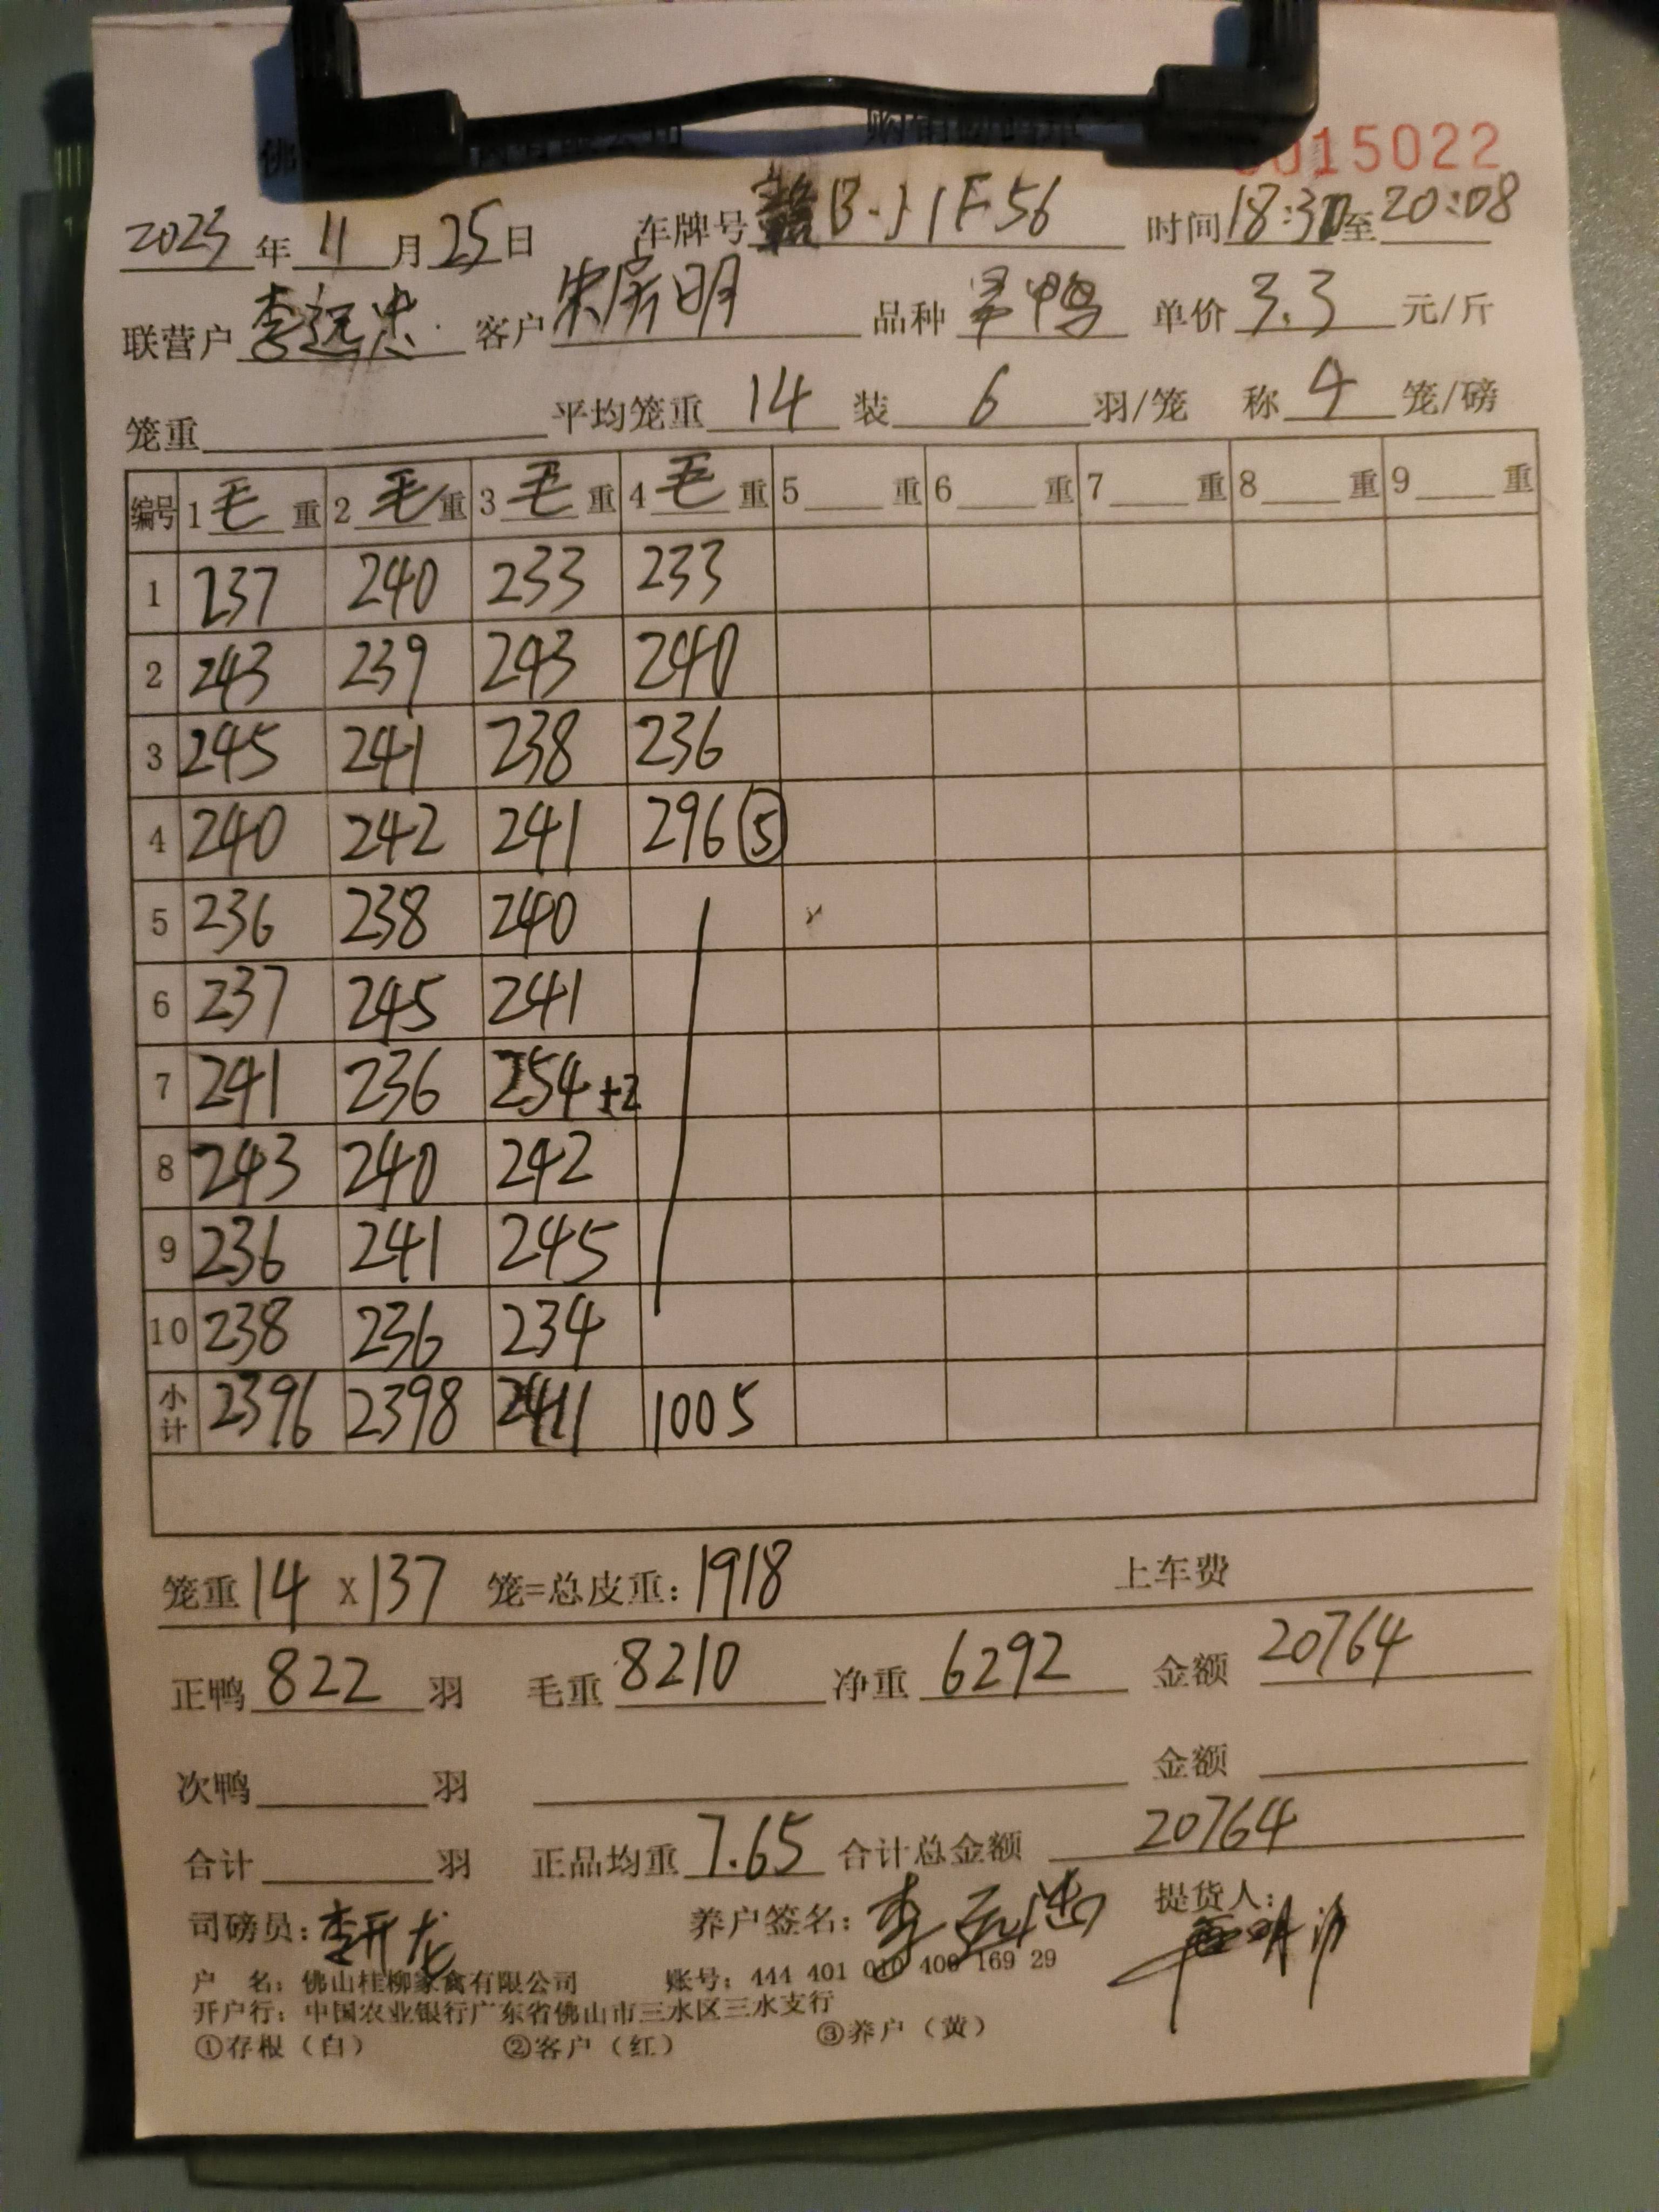 佛
0015022
2023年11月25日 车牌号 赣B·J1F56 时间18:30至20:08
联营户 李远忠 客户 朱房明 品种 旱鸭 单价 3.3 元/斤
笼重 平均笼重 14 装 6 羽/笼 称 4 笼/磅
编号 1毛重 2毛重 3毛重 4毛重 5重 6重 7重 8重 9重
1 237 240 233 233
2 243 239 243 240
3 245 241 238 236
4 240 242 241 296 ⑤
5 236 238 240
6 237 245 241
7 241 236 254 +2
8 243 240 242
9 236 241 245
10 238 236 234
小计 2396 2398 2411 1005
笼重14 X 137 笼=总皮重: 1918 上车费
正鸭 822 羽 毛重 8210 净重 6292 金额 20764
次鸭 羽 金额
合计 羽 正品均重 7.65 合计总金额 20764
司磅员: 李开龙 养户签名: 李远忠 提货人:
户 名: 佛山桂柳家禽有限公司 账号: 444 401 010 400 169 29
开户行: 中国农业银行广东省佛山市三水区三水支行
①存根(白) ②客户(红) ③养户(黄)